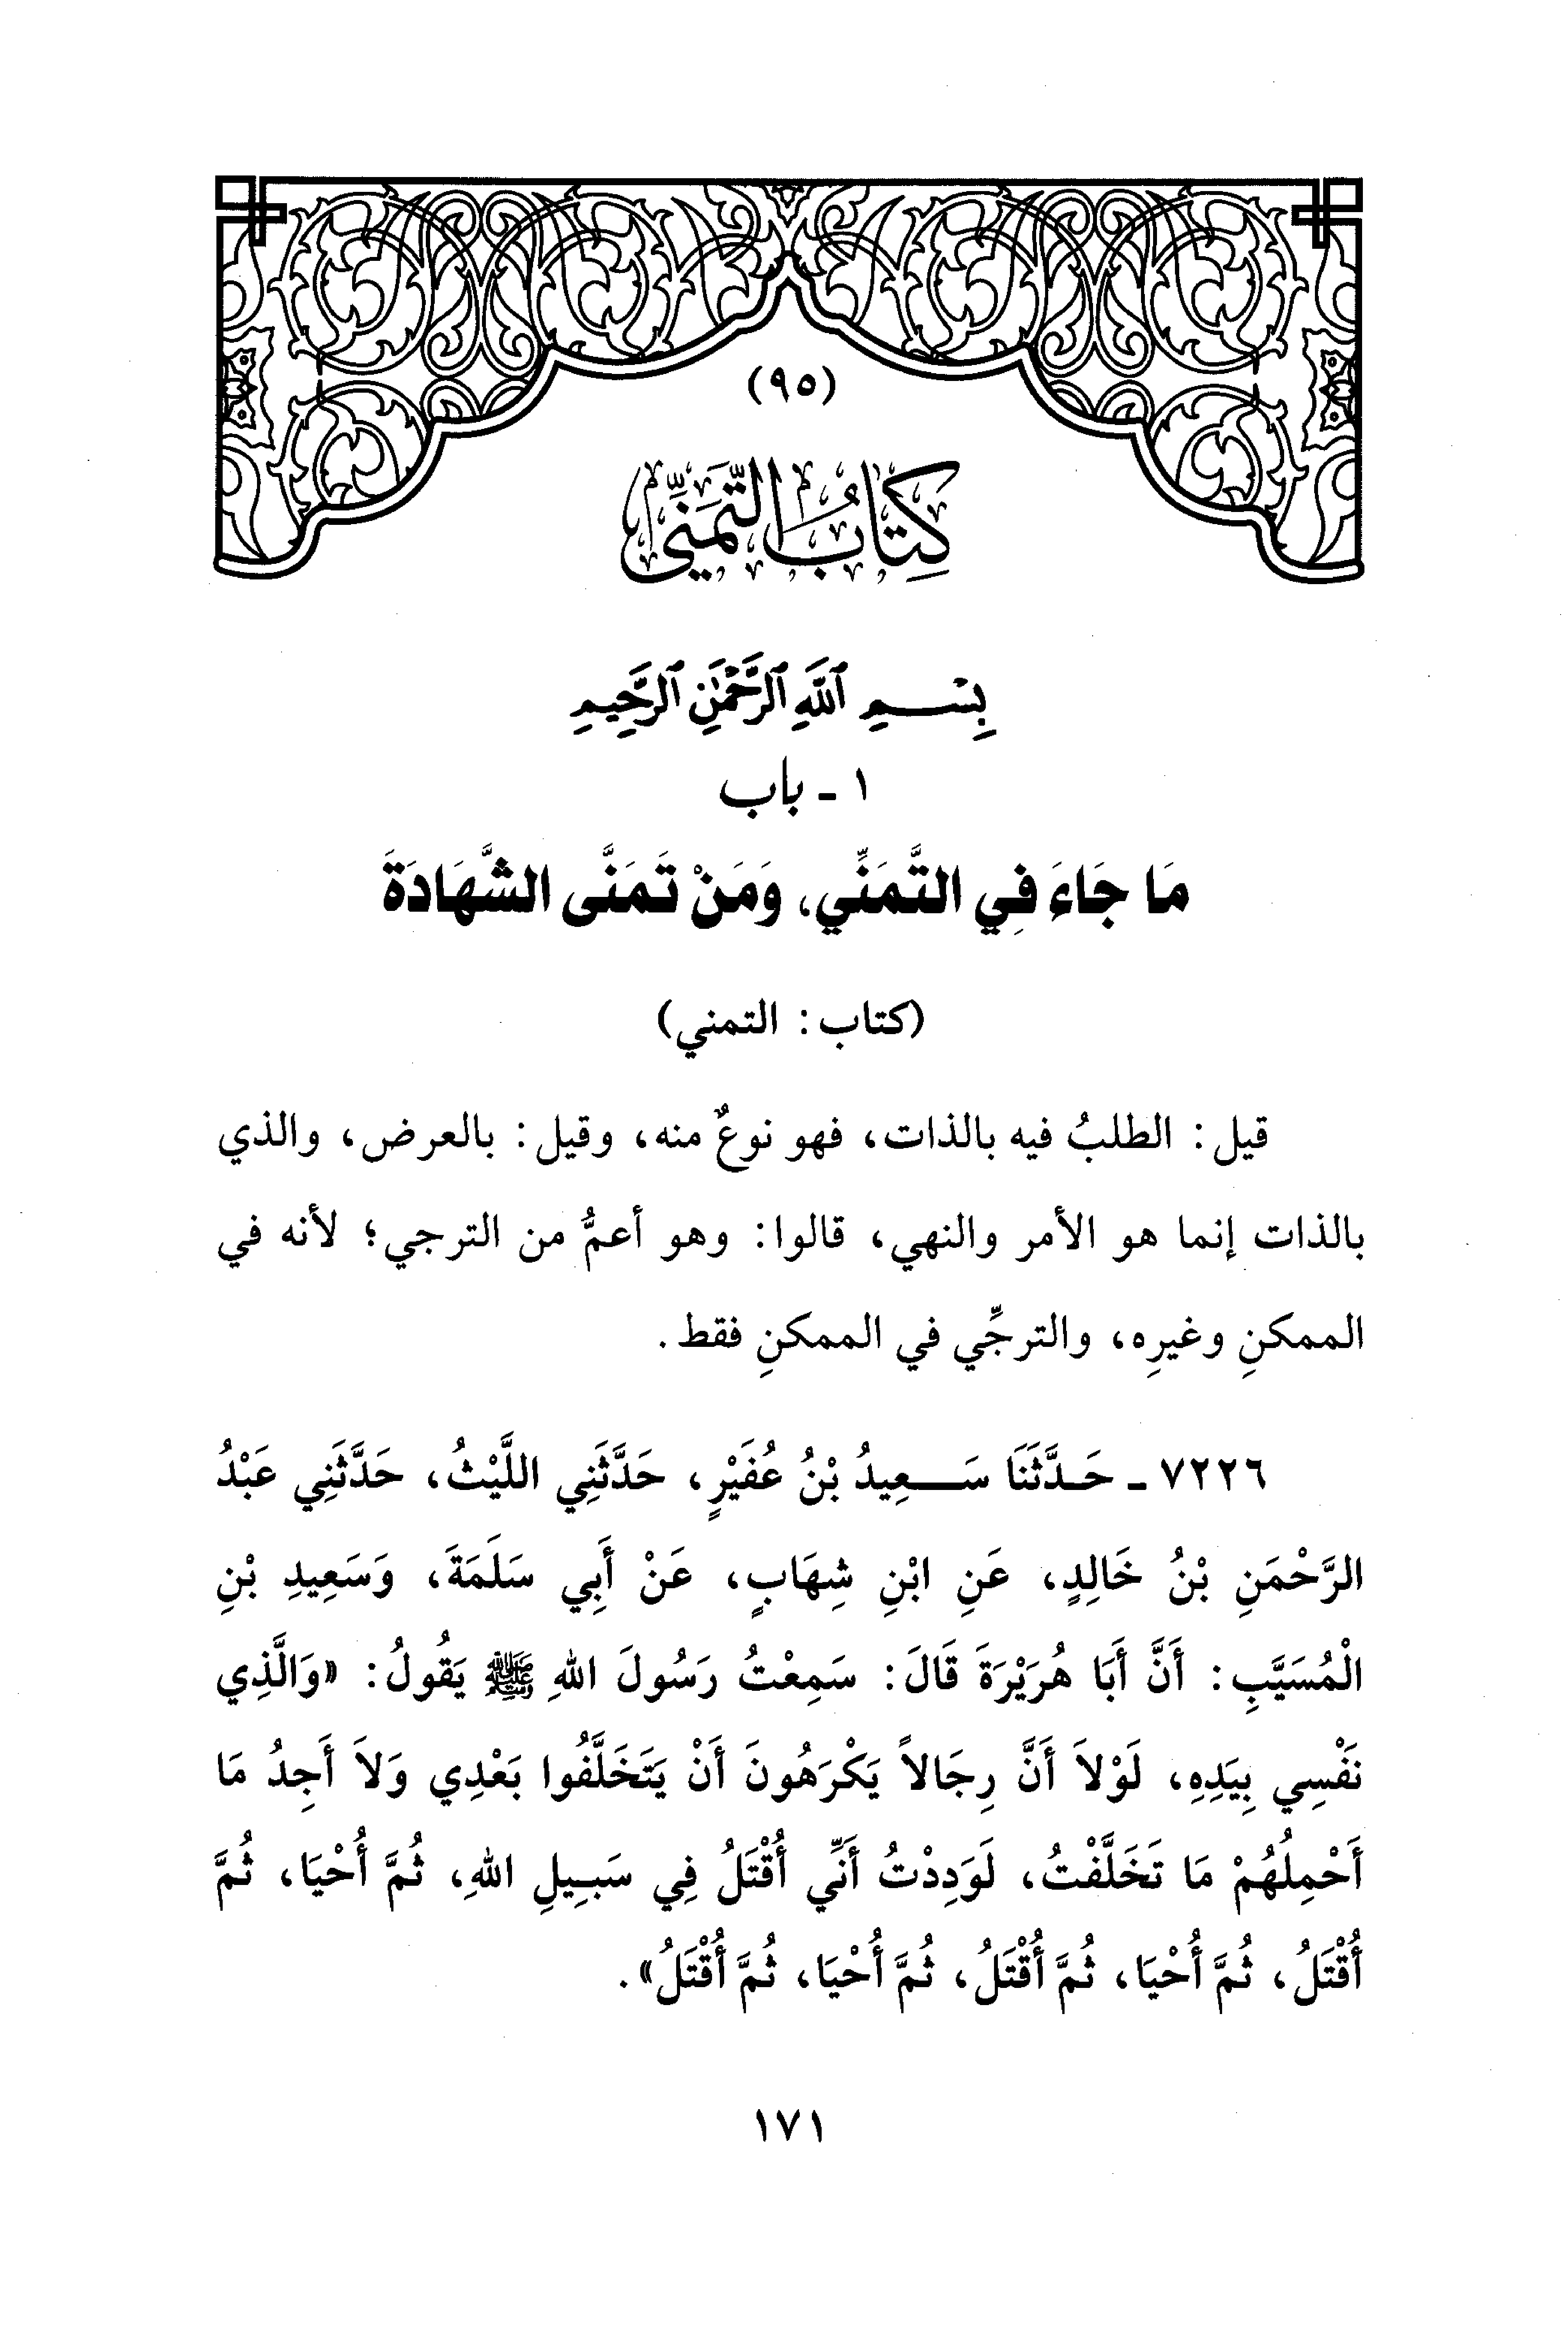 (٩٥)
كِتَابُ التَّمَنِّي
بِسْمِ ٱللَّهِ ٱلرَّحْمَٰنِ ٱلرَّحِيمِ
١ - باب
مَا جَاءَ فِي التَّمَنِّي، وَمَنْ تَمَنَّى الشَّهَادَةَ
(كتاب: التمني)
قيل: الطلبُ فيه بالذات، فهو نوعٌ منه، وقيل: بالعرض، والذي
بالذات إنما هو الأمر والنهي، قالوا: وهو أعمُّ من الترجي؛ لأنه في
الممكنِ وغيرِه، والترجِّي في الممكنِ فقط.
٧٢٢٦ - حَدَّثَنَا سَعِيدُ بْنُ عُفَيْرٍ، حَدَّثَنِي اللَّيْثُ، حَدَّثَنِي عَبْدُ
الرَّحْمَنِ بْنُ خَالِدٍ، عَنِ ابْنِ شِهَابٍ، عَنْ أَبِي سَلَمَةَ، وَسَعِيدِ بْنِ
الْمُسَيَّبِ: أَنَّ أَبَا هُرَيْرَةَ قَالَ: سَمِعْتُ رَسُولَ اللهِ ﷺ يَقُولُ: «وَالَّذِي
نَفْسِي بِيَدِهِ، لَوْلاَ أَنَّ رِجَالاً يَكْرَهُونَ أَنْ يَتَخَلَّفُوا بَعْدِي وَلاَ أَجِدُ مَا
أَحْمِلُهُمْ مَا تَخَلَّفْتُ، لَوَدِدْتُ أَنِّي أُقْتَلُ فِي سَبِيلِ اللهِ، ثُمَّ أُحْيَا، ثُمَّ
أُقْتَلُ، ثُمَّ أُحْيَا، ثُمَّ أُقْتَلُ، ثُمَّ أُحْيَا، ثُمَّ أُقْتَلُ».
١٧١